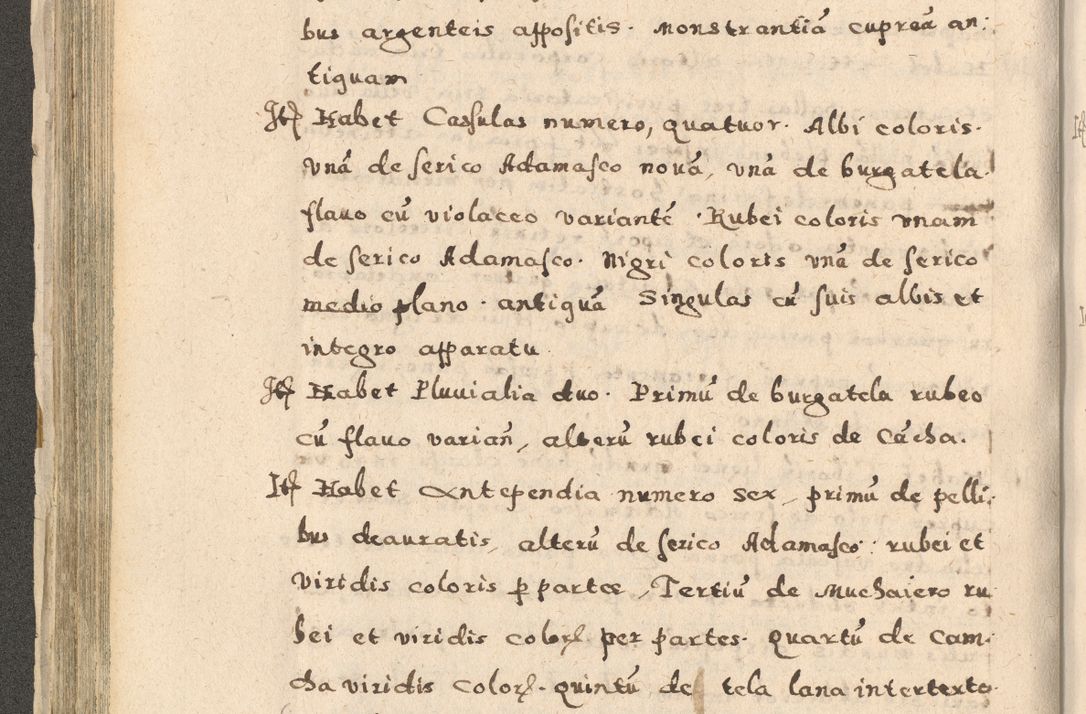 bus argenteis appositis. Monstrantiã cupreã an:
tiquam
Itẽ Habet Casulas numero, quatuor. Albi coloris.
vnã de serico Adamasco nouã, vnã de burgatela
flauo cũ violaceo variantẽ. Rubei coloris vnam
de serico Adamasco. Nigri coloris vnã de serico
medio plano. antiquã Singulas cũ suis albis et
integro apparatu.
Itẽ Habet Pluuialia duo. Primũ de burgatela rubeo
cũ flauo varian̄, alterũ rubei coloris de Cãcha.
Itẽ Habet Antependia numero sex, primũ de pelli:
bus deauratis, alterũ de serico Adamasco: rubei et
viridis coloris ꝑ partes, Tertiũ de Muchaiero ru
bei et viridis colorꝭ per partes. Quartũ de Cam:
cha viridis colorꝭ. quintũ de tela lana intertexto.